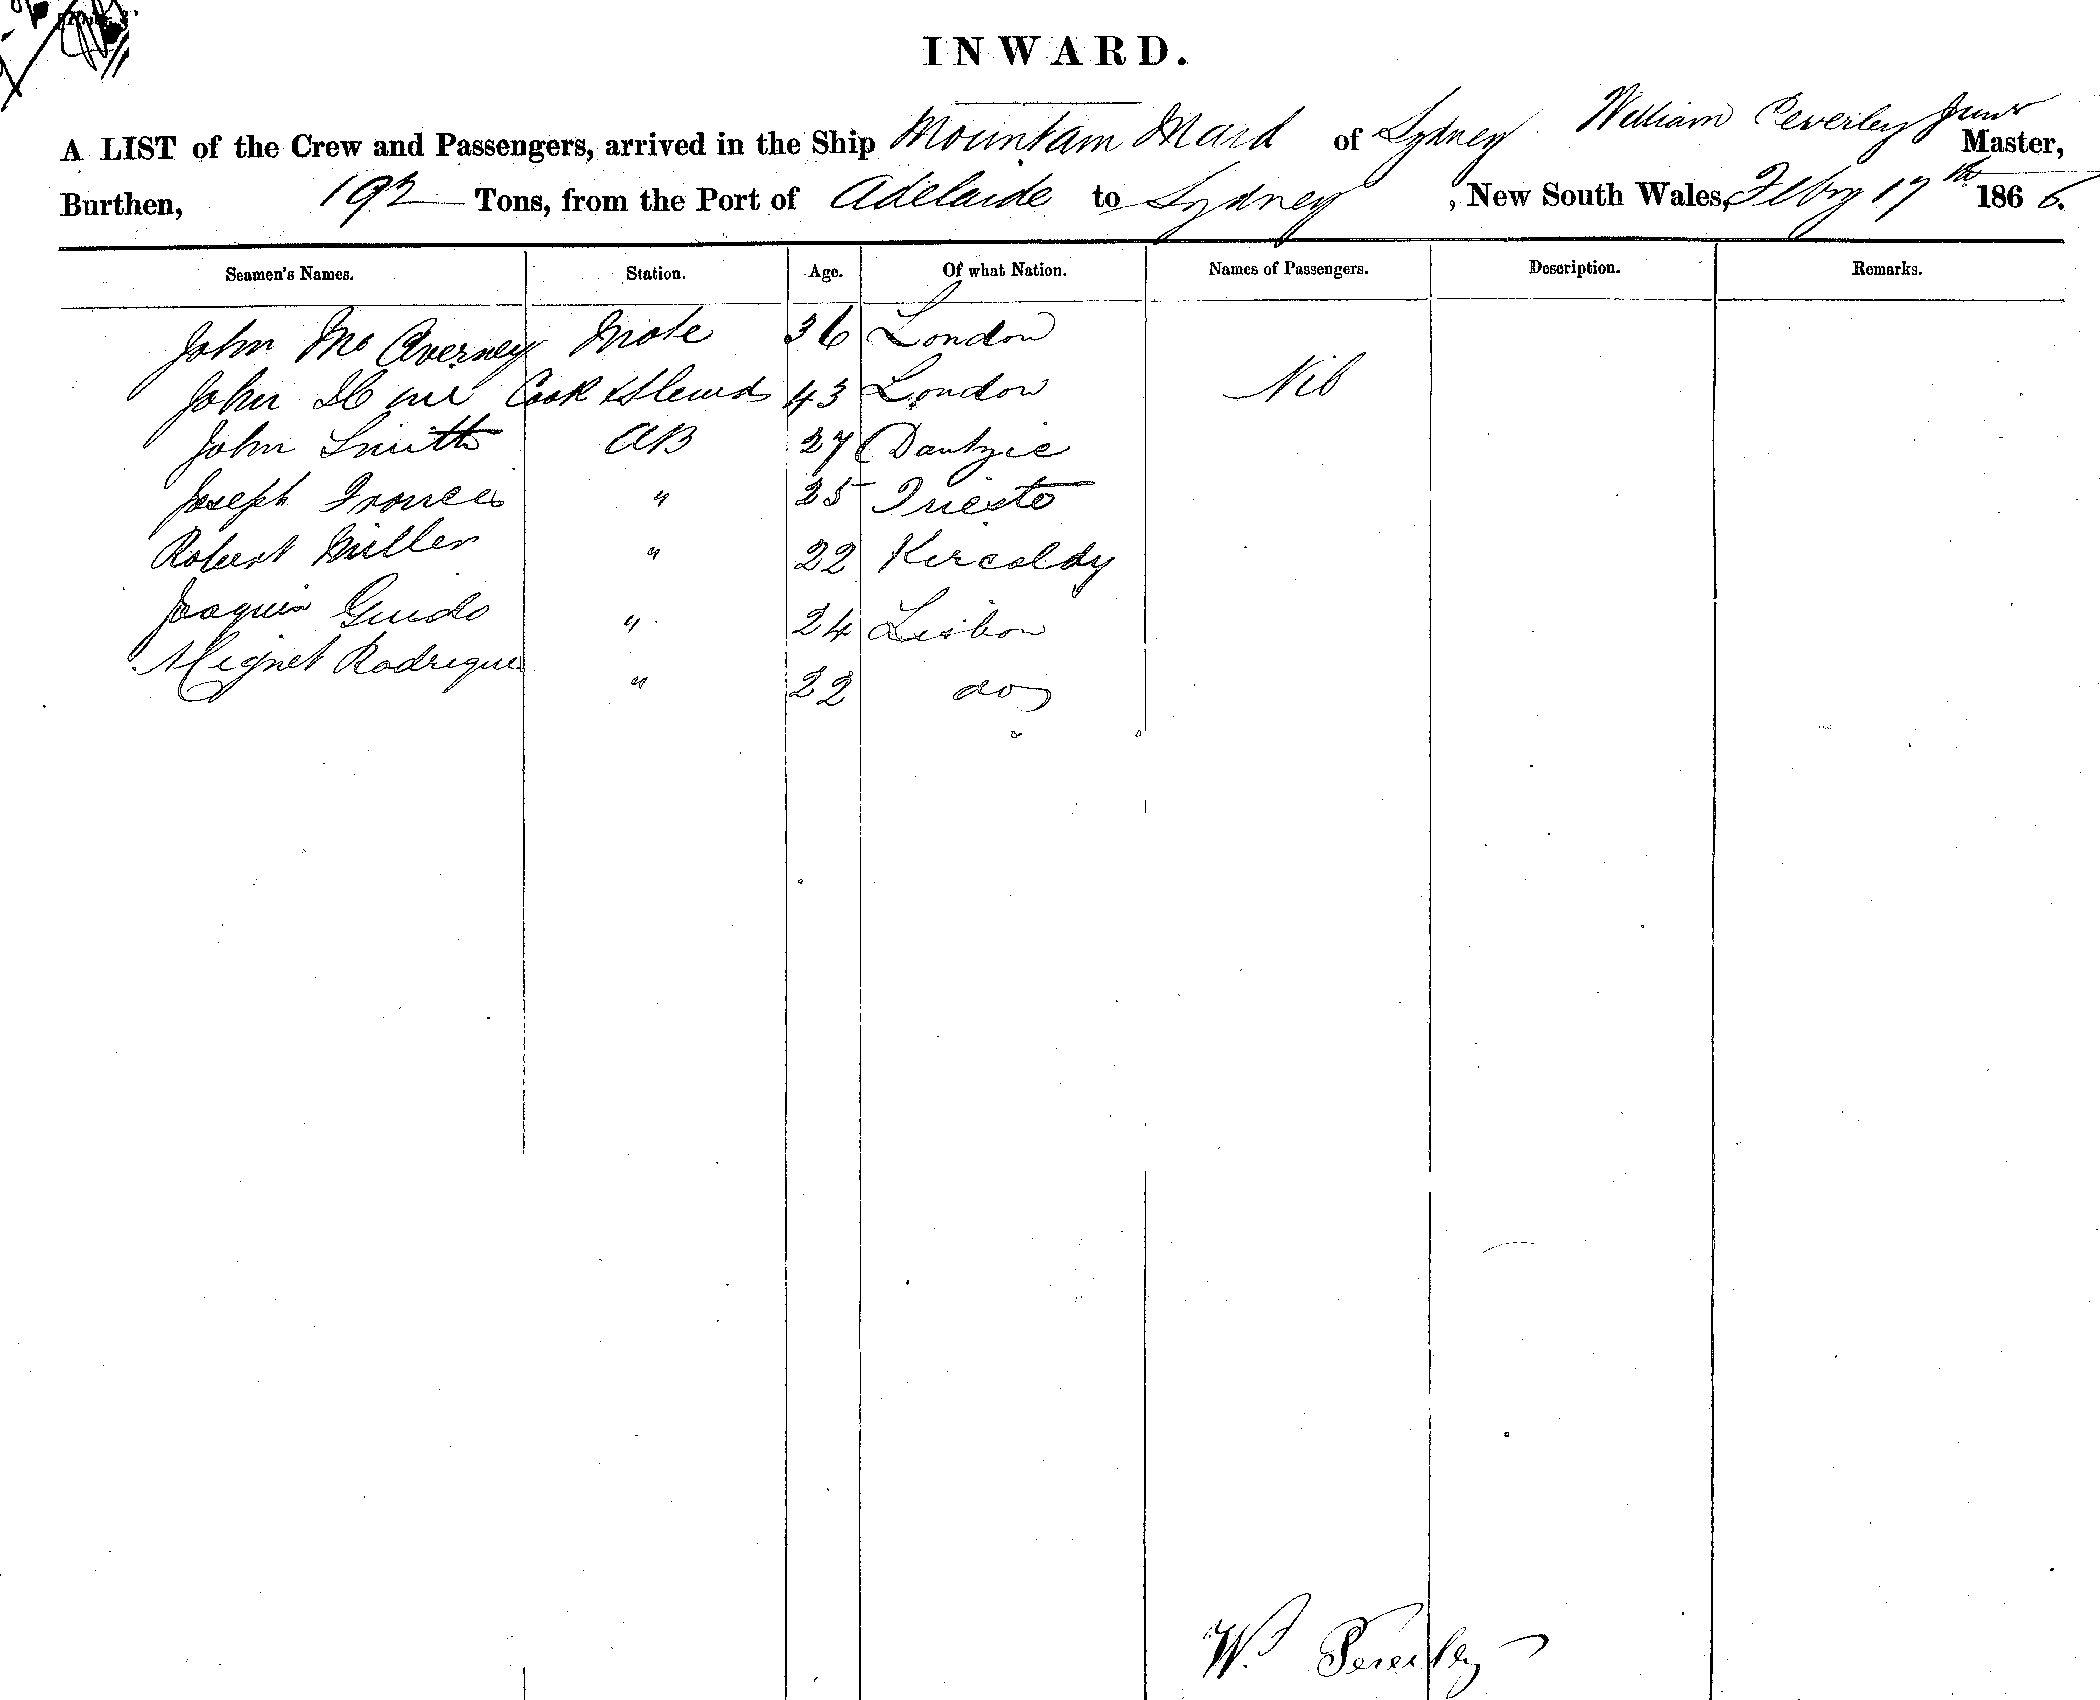 INWARD.
A LIST of the Crew and Passengers, arrived in the Ship Mountain Maid of Sydney William Peverley Junr Master,
Burthen, 192 Tons, from the Port of Adelaide to Sydney, New South Wales, Feby 17th 1866.
Seamen's Names. Station. Age. Of what Nation. Names of Passengers. Description. Remarks.
John McAverney Mate 36 London
John Cook & Steward 43 London Nil
John Smith AB 27 Dantzic
Joseph Frances " 25 Trieste
Robert Miller " 22 Kircaldy
Joaquin Guido " 24 Lisbon
Miguel Rodrigues " 22 do
W. Peverley